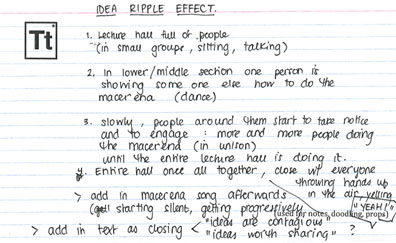 IDEA RIPPLE EFFECT.
Tt
1. Lecture hall full of people
(in small groups, sitting, talking)
2. In lower/middle section one person is
showing some one else how to do the
macerena (dance)
3. slowly, people around them start to take notice
and to engage : more and more people doing
the macerena (in unison)
until the entire lecture hall is doing it.
4. Entire hall once all together, close w/ everyone
throwing hands up
in the air yelling
"YEAH!"
> add in macerena song afterwards
starting silent, getting progressively
(used for notes, doodling, props)
> add in text as closing < "ideas are contagious"
"ideas worth sharing" ?